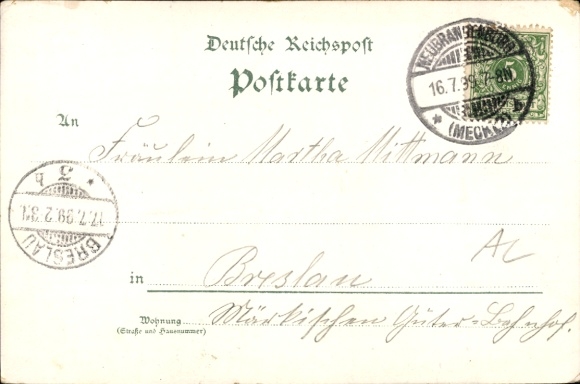 Deutsche Reichspost
Postkarte
NEUBRANDENBURG
16.7.99.7-8N
(MECKL.)
5
An
Fräulein Martha Mittmann
BRESLAU
17.7.99.2
5
in Breslau
Wohnung Märkischen Güter-Bahnhof.
(Straße und Hausnummer)